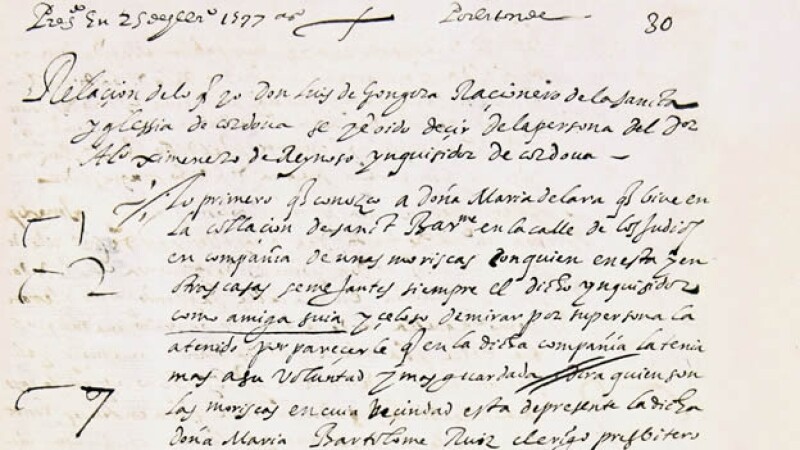 Pres^do En 25 de [...] 1597 as 30
Relacion de lo q yo Don Luis de Gongora Racionero de la sancta
yglessia de cordoua se y e oido decir de la persona del Dor
Alo ximenez de Reynoso ynquisidor de cordoua —
Lo primero q conozco a doña Maria de lara q biue en
la collacion de sanct Barme en la calle de los Judios
en compañia de unas moriscas con quien en esta y en
otras casas semejantes siempre el dicho ynquisidor
como amiga suia y celoso de mirar por su persona la
a tenido por parecerle q en la dicha compañia la tenia
mas a su voluntad y mas guardada dira quien son
las moriscas en cuia vecindad esta de presente la dicha
doña Maria Bartolome Ruiz clerigo presbitero